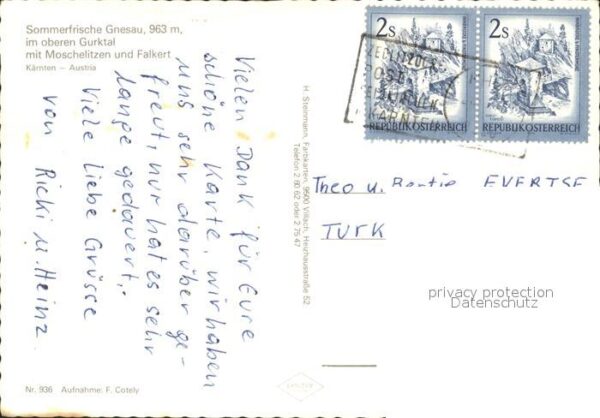 Sommerfrische Gnesau, 963 m,
im oberen Gurktal
mit Moschelitzen und Falkert
Kärnten – Austria
Vielen Dank für Eure
schöne Karte, wir haben
uns sehr darüber ge-
freut, nur hat es sehr
lange gedauert.
Viele liebe Grüsse
von Ricki u. Heinz
Nr. 936 Aufnahme: F. Cotely
H. Steinmann, Farbkarten, 9500 Villach, Heizhausstraße 52
Telefon 2 80 62 oder 2 75 47
2s
REPUBLIK ÖSTERREICH
2s
REPUBLIK ÖSTERREICH
POST
KÄRNTEN
Theo u. EVERTSE
TURK
privacy protection
Datenschutz